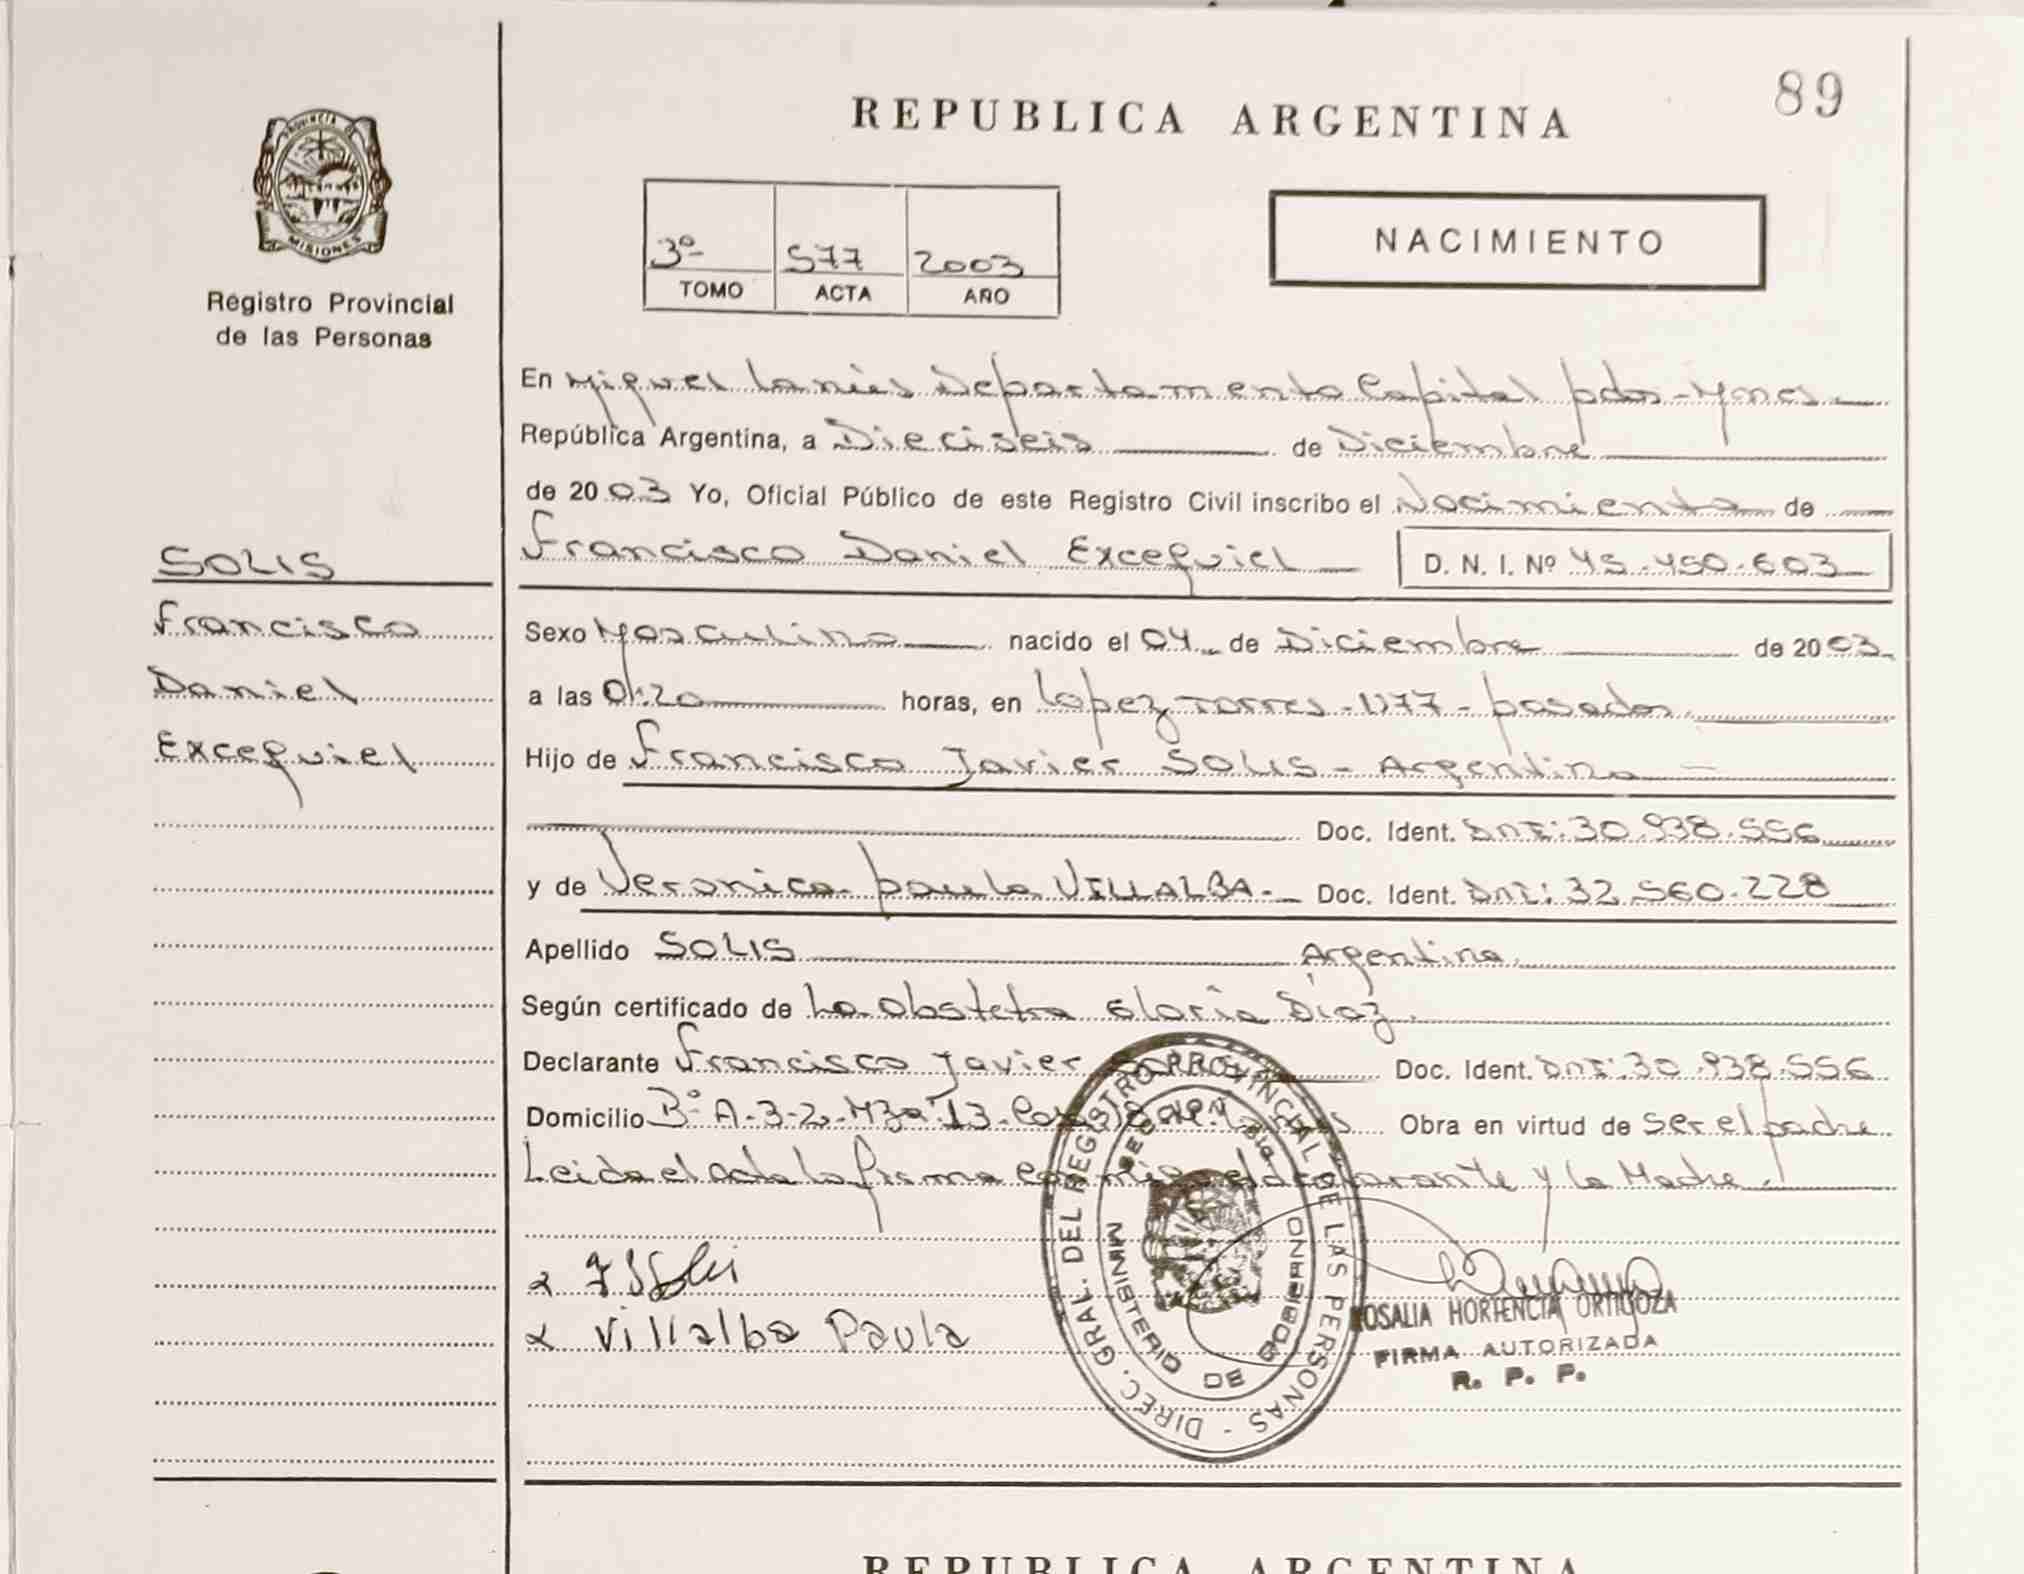 89
REPUBLICA ARGENTINA
PROVINCIA DE
MISIONES
Registro Provincial
de las Personas
3º 577 2003
TOMO ACTA AÑO
NACIMIENTO
En Miguel Lanús Departamento Capital pdas - Mnes
República Argentina, a Dieciseis de Diciembre
de 2003 Yo, Oficial Público de este Registro Civil inscribo el Nacimiento de
Francisco Daniel Excequiel D. N. I. Nº 45.450.603
SOLIS
Francisco
Daniel
Excequiel
Sexo Masculino nacido el 04 de Diciembre de 2003
a las 01:20 horas, en Lopez Torres - 1177 - posadas
Hijo de Francisco Javier SOLIS - Argentino -
Doc. Ident. DNI: 30.938.556
y de Veronica paula VILLALBA - Doc. Ident. DNI: 32.560.228
Apellido SOLIS Argentina
Según certificado de La Obstetra Gloria Diaz.
Declarante Francisco Javier Doc. Ident. DNI: 30.938.556
Domicilio Bº A-3-2-Mza 13. Obra en virtud de ser el padre
Leida el acta la firma conmigo el declarante y la Madre.
Villalba Paula
DIREC. GRAL. DEL REGISTRO PROVINCIAL DE LAS PERSONAS -
MINISTERIO DE GOBIERNO
ROSALIA HORTENCIA ORTIGOZA
FIRMA AUTORIZADA
R. P. P.
REPUBLICA ARGENTINA